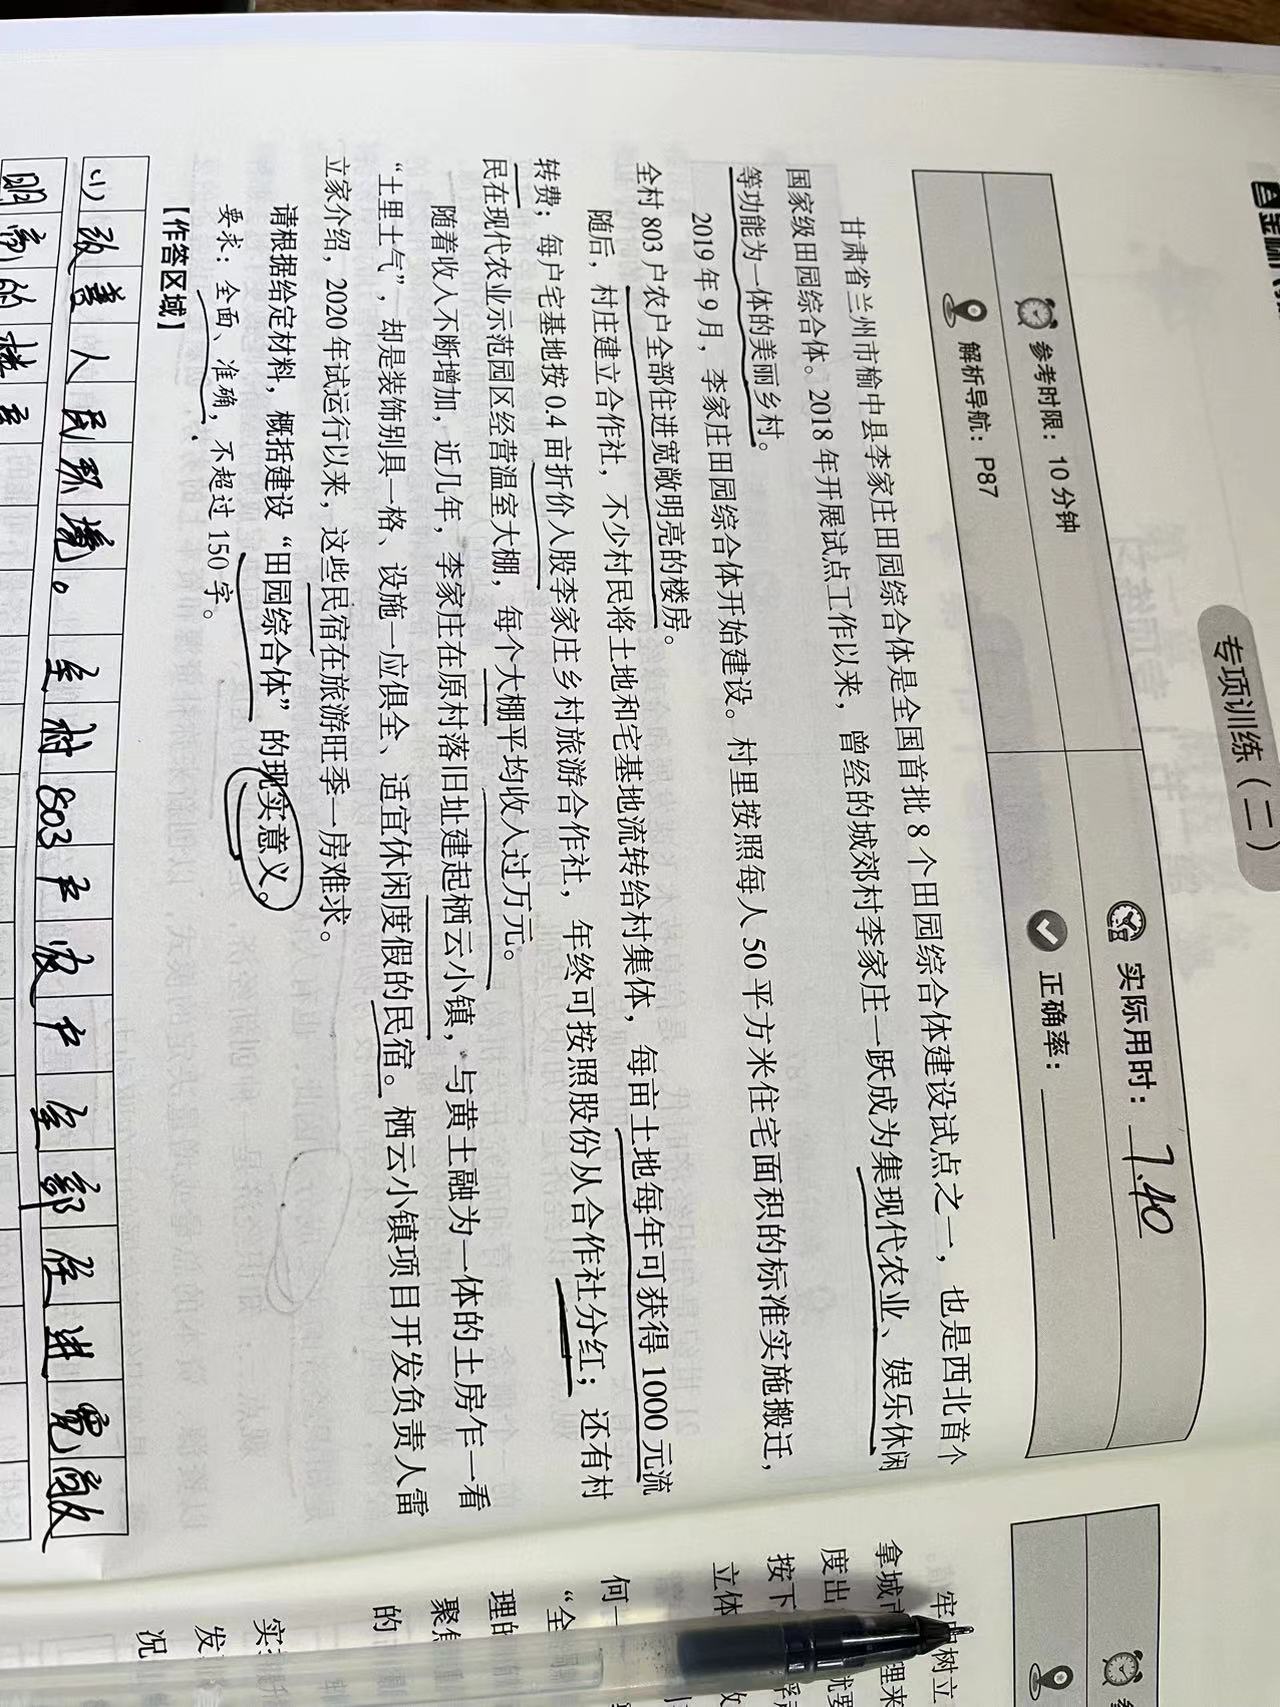 专项训练（二）
参考时限：10分钟
实际用时：7.40
解析导航：P87
正确率：
甘肃省兰州市榆中县李家庄田园综合体是全国首批8个田园综合体建设试点之一，也是西北首个
国家级田园综合体。2018年开展试点工作以来，曾经的城郊村李家庄一跃成为集现代农业、娱乐休闲
等功能为一体的美丽乡村。
2019年9月，李家庄田园综合体开始建设。村里按照每人50平方米住宅面积的标准实施搬迁，
全村803户农户全部住进宽敞明亮的楼房。
随后，村庄建立合作社，不少村民将土地和宅基地流转给村集体，每亩土地每年可获得1000元流
转费；每户宅基地按0.4亩折价入股李家庄乡村旅游合作社，年终可按照股份从合作社分红；还有村
民在现代农业示范园区经营温室大棚，每个大棚平均收入过万元。
随着收入不断增加，近几年，李家庄在原村落旧址建起栖云小镇，与黄土融为一体的土房乍一看
“土里土气”，却是装饰别具一格、设施一应俱全、适宜休闲度假的民宿。栖云小镇项目开发负责人雷
立家介绍，2020年试运行以来，这些民宿在旅游旺季一房难求。
请根据给定材料，概括建设“田园综合体”的现实意义。
要求：全面、准确，不超过150字。
【作答区域】
(1)改善人民环境。全村803户农户全部住进宽敞
明亮的楼房
牢固树立
拿城市
理来
度出
就要
按下
立体
何一
“全
理的
聚焦
的
实
发
况